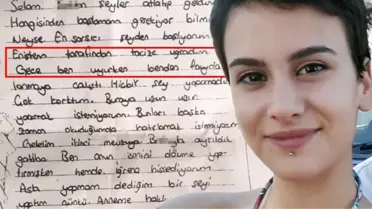 Selam. şeyler atlatıp geldim
Hangisinden başlamam gerekiyor bilmi
Neyse En sarsıcı şeyden başlıyorum
Eniştem tarafından tacize uğradım
Gece ben uyurken benden fayda
lanmaya çalıştı Hiçbir şey yapamadım
Çok korktum. Buraya uzun uzun
yazmak istemiyorum. Bunları başka
zaman okuduğumda hatırlamak istemiyorum
Gelelim ikinci mevzuya. ayrıldık
galiba Ben onun ismini dövme yap-
tırmışken hemde. iğrenç hissediyorum
Asla yapmam dediğim bir şeyi
yaptım çünkü. Anneme